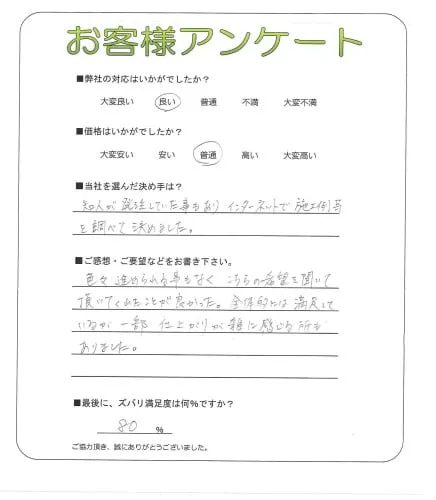 お客様アンケート
■弊社の対応はいかがでしたか？
大変良い 良い 普通 不満 大変不満
■価格はいかがでしたか？
大変安い 安い 普通 高い 大変高い
■当社を選んだ決め手は？
知人が発注していた事もあり インターネットで 施工例等
を調べて 決めました。
■ご感想・ご要望などをお書き下さい。
色々 進められる事もなく こちらの希望を聞いて
頂いてくれたことが良かった。全体的には 満足して
いるが 一部 仕上がりが 雑に感じる 所も
ありました。
■最後に、ズバリ満足度は何%ですか？
80 %
ご協力頂き、誠にありがとうございました。